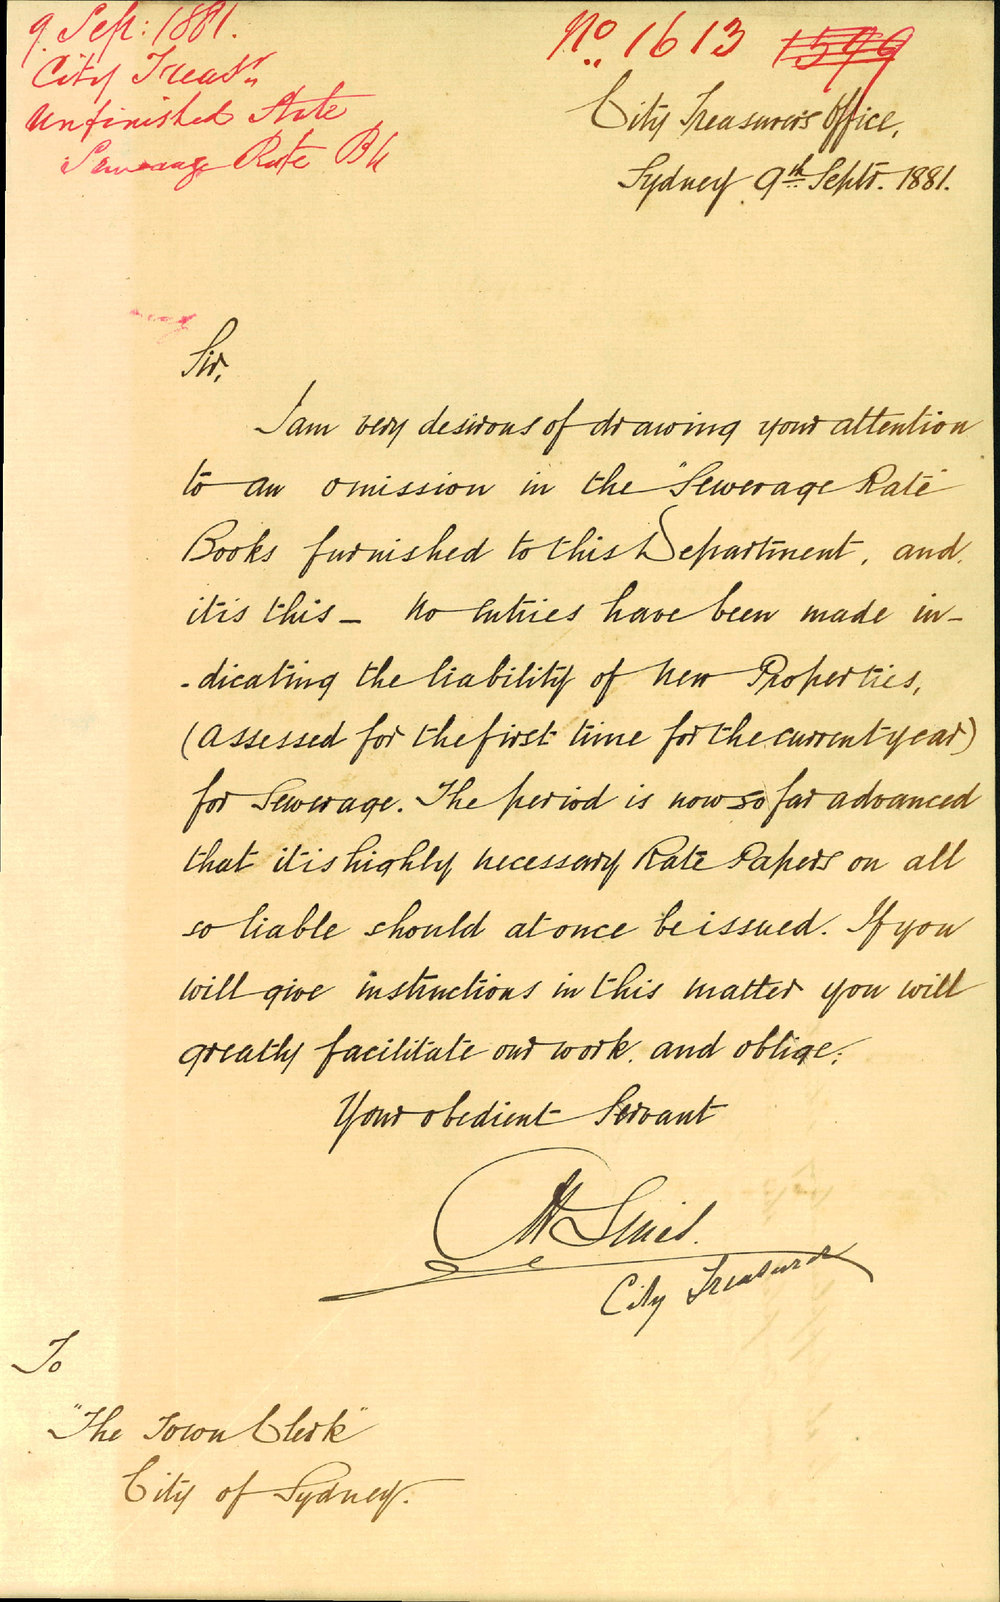 9 Sep: 1881.
City Treasr
Unfinished State
Sewerage Rate Bk
No. 1613 1599
City Treasurer's Office,
Sydney 9th Septr. 1881.
Sir,
I am very desirous of drawing your attention
to an omission in the "Sewerage Rate"
Books furnished to this Department, and
it is this — No Entries have been made in-
-dicating the liability of New Properties,
(assessed for the first time for the current year)
for Sewerage. The period is now so far advanced
that it is highly necessary Rate Papers on all
so liable should at once be issued. If you
will give instructions in this matter you will
greatly facilitate our work, and oblige;
Your obedient Servant
City Treasurer
To
"The Town Clerk"
City of Sydney.